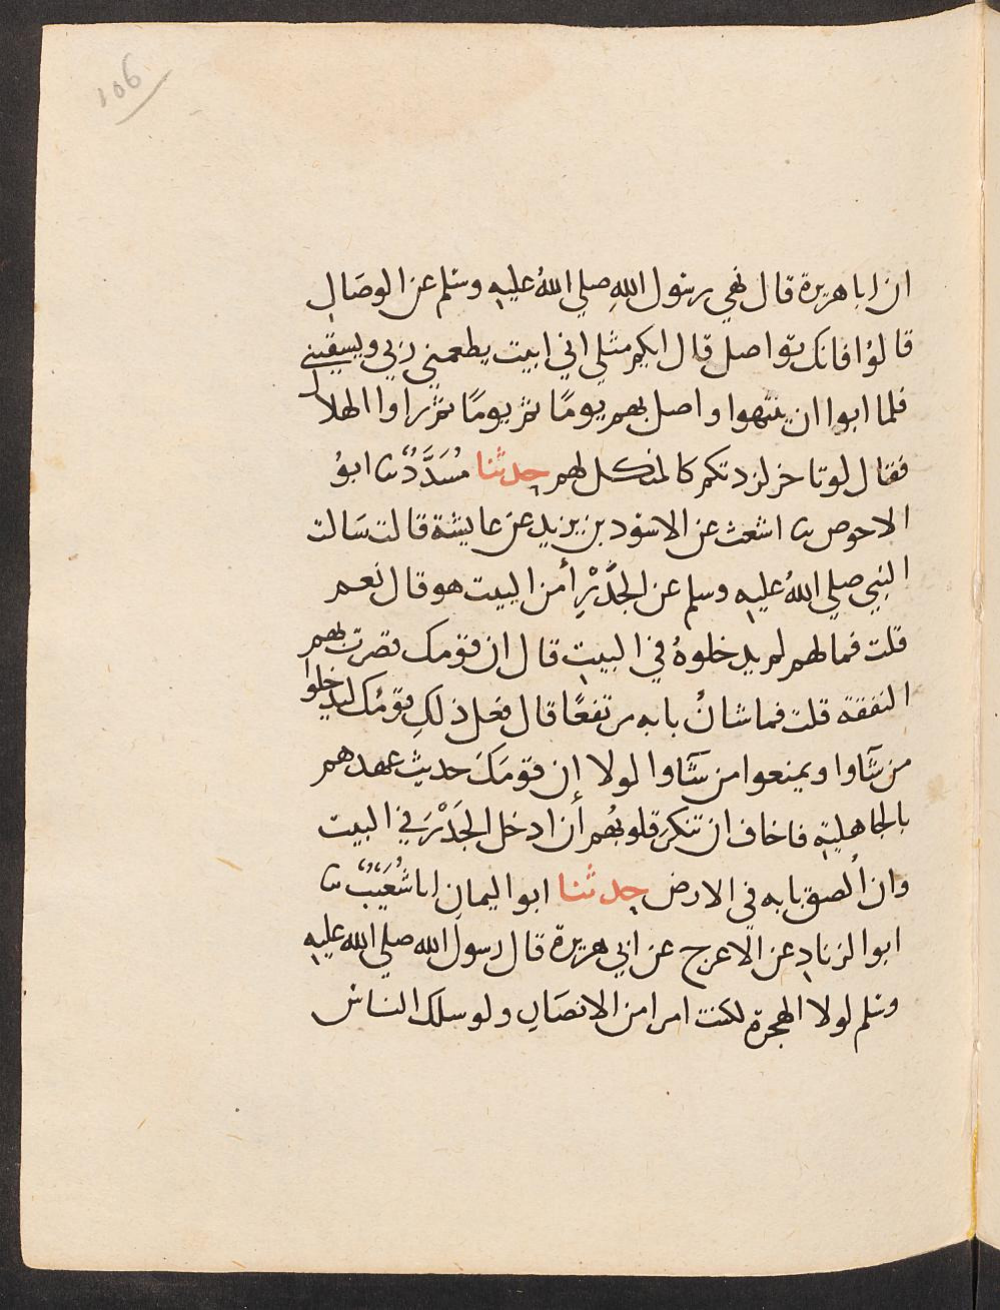 106
ان ابا هريرة قال نهي رسول اللهِ صلي اللهُ عليهِ وسلم عن الوصَالِ
قالوُا فانك تواصل قال ايكم مثلي اني ابيت يطعمني ربي ويسقيني
فلما ابوا ان ينتهوا واصل بهم يومًا ثم يومًا ثم راوا الهلال
فقال لو تاخر لزدتكم كالمنكل لهم حدثنا مُسَدَّدٌ ثنا ابوُ
الاحوص ثنا اشعث عن الاسود بن يزيد عن عايشة قالت سَالت
النبي صلي اللهُ عليهِ وسلم عن الجَدْرِ أمن البيت هو قال نعم
قلت فمالهم لم يدخلوهُ في البيتِ قال ان قومك قصرت بهم
النفقة قلت فما شانُ بابه مرتفعًا قال فعل ذلكِ قومُك ليدخلوا
من شَآوا ويمنعوا من شَآوا لولا إن قومَكَ حديث عهدهم
بالجاهليةِ فاخاف ان تنكرَ قلوبُهم أن ادخل الجَدْرَ في البيت
وان أُلصق بابه في الارض حدثنا ابوا اليمانِ انا شُعَيْبٌ ثنا
ابوا الزنادِ عن الاعرج عن ابي هريرة قال رسول الله صلي الله عليهِ
وسلم لولا الهجرة لكنت امرا من الانصَارِ ولو سلك الناس